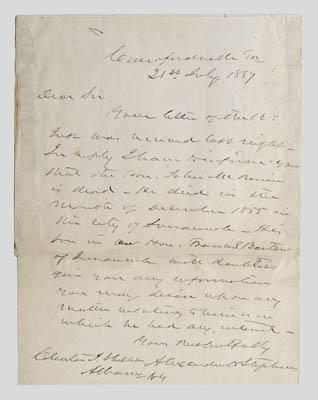 Crawfordville Ga
21st July 1859
Dear Sir
Your letter of the 16th
Inst was received last night -
In reply I have to inform you
that the Hon. John M.
is dead - He died in the
month of December 1855 in
the city of Savannah - His
son in law Hon. Francis S. Bartow
of Savannah will doubtless
give you any information
you may desire upon any
matter relating to him in
which he had any interest -
Yours Respectfully
Alexander H Stephens
Albany N.Y